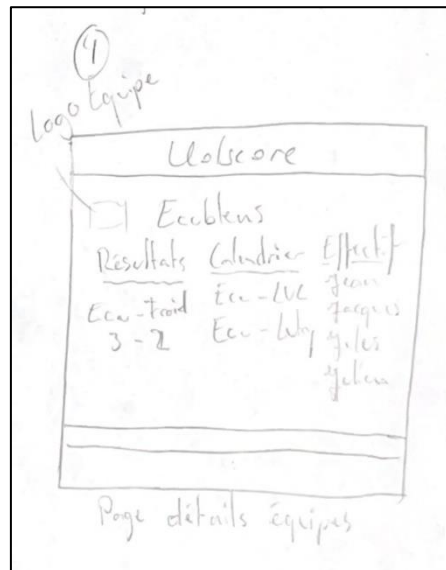 4
Logo Equipe
Volscore
Ecublens
Résultats Calendrier Effectif
Ecu - Froid Ecu - LUC Jean
3 - 2 Ecu - Lutry Jacques
Jules
Julien
Page détails équipes